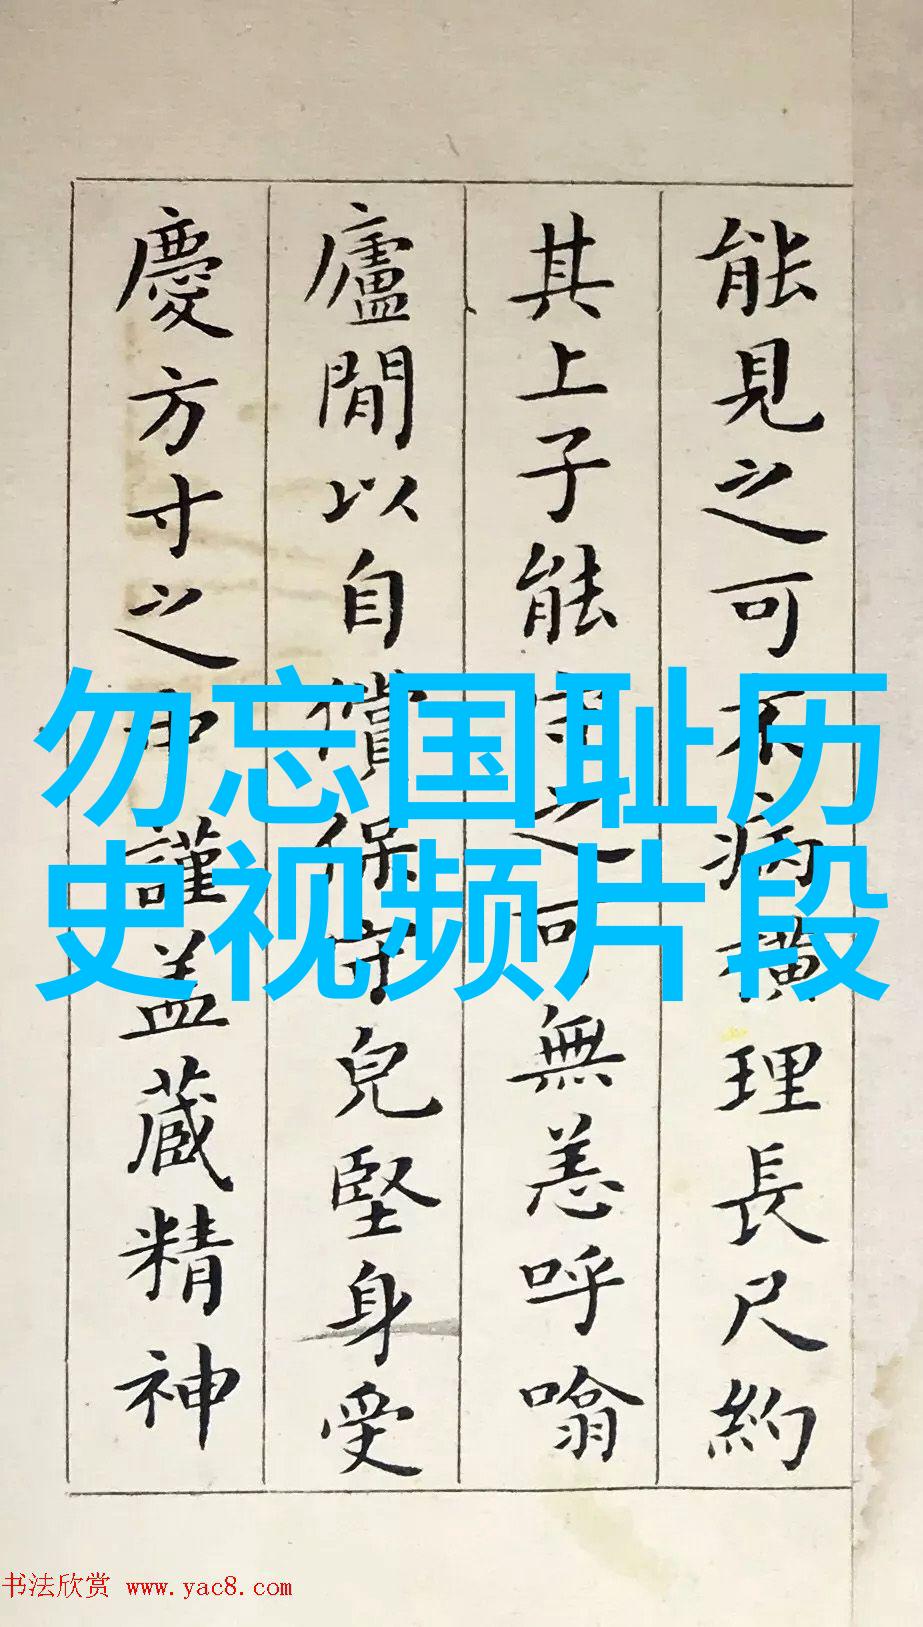 能見之可不病橫理長尺約
其上子能守之可無恙呼噏
廬間以自償保守皃堅身受
慶方寸之中謹盖藏精神
勿忘国耻历
史视频片段
书法欣赏 www.yac8.com